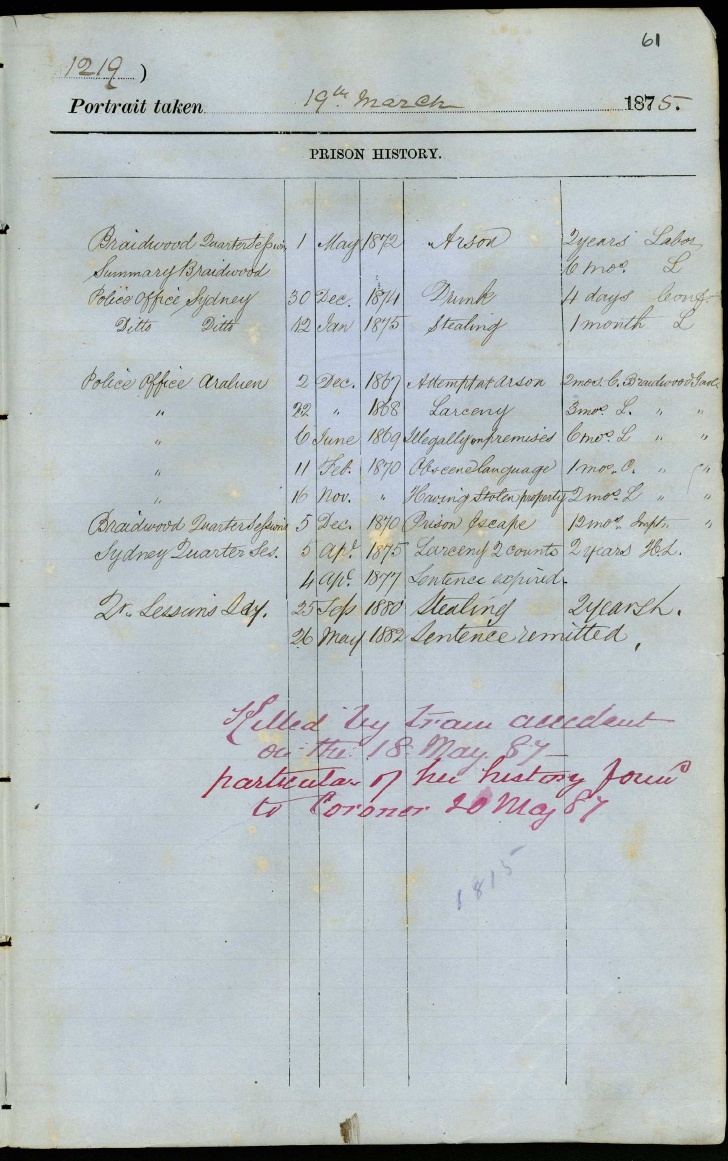 61
1219 )
Portrait taken 19th March 1875.
PRISON HISTORY.
Braidwood Quarter Sessions 1 May 1872 Arson 2 years Labor
Summary Braidwood 6 mos. L
Police Office Sydney 30 Dec. 1874 Drunk 4 days Conf
Ditto Ditto 12 Jan 1875 Stealing 1 month L
Police Office Araluen 2 Dec. 1867 Attempt at Arson 2 mos. C. Braidwood Gaol
" 22 " 1868 Larceny 3 mos. L. " "
" 6 June 1869 Illegally on premises 6 mos. L " "
" 11 Feb. 1870 Obscene language 1 mos. C. " "
" 16 Nov. " Having Stolen property 2 mos. L " "
Braidwood Quarter Sessions 5 Dec. 1870 Prison Escape 12 mos. Impt. "
Sydney Quarter Ses. 5 Apl. 1875 Larceny 2 counts 2 years H.L.
4 Apl. 1877 Sentence expired.
Qr. Sessions Sdy. 25 Sep 1880 Stealing 2 years h.
26 May 1882 Sentence remitted
Killed by tram accident
on the 18 May 87
particular of her history
to Coroner 20 May 87
1815